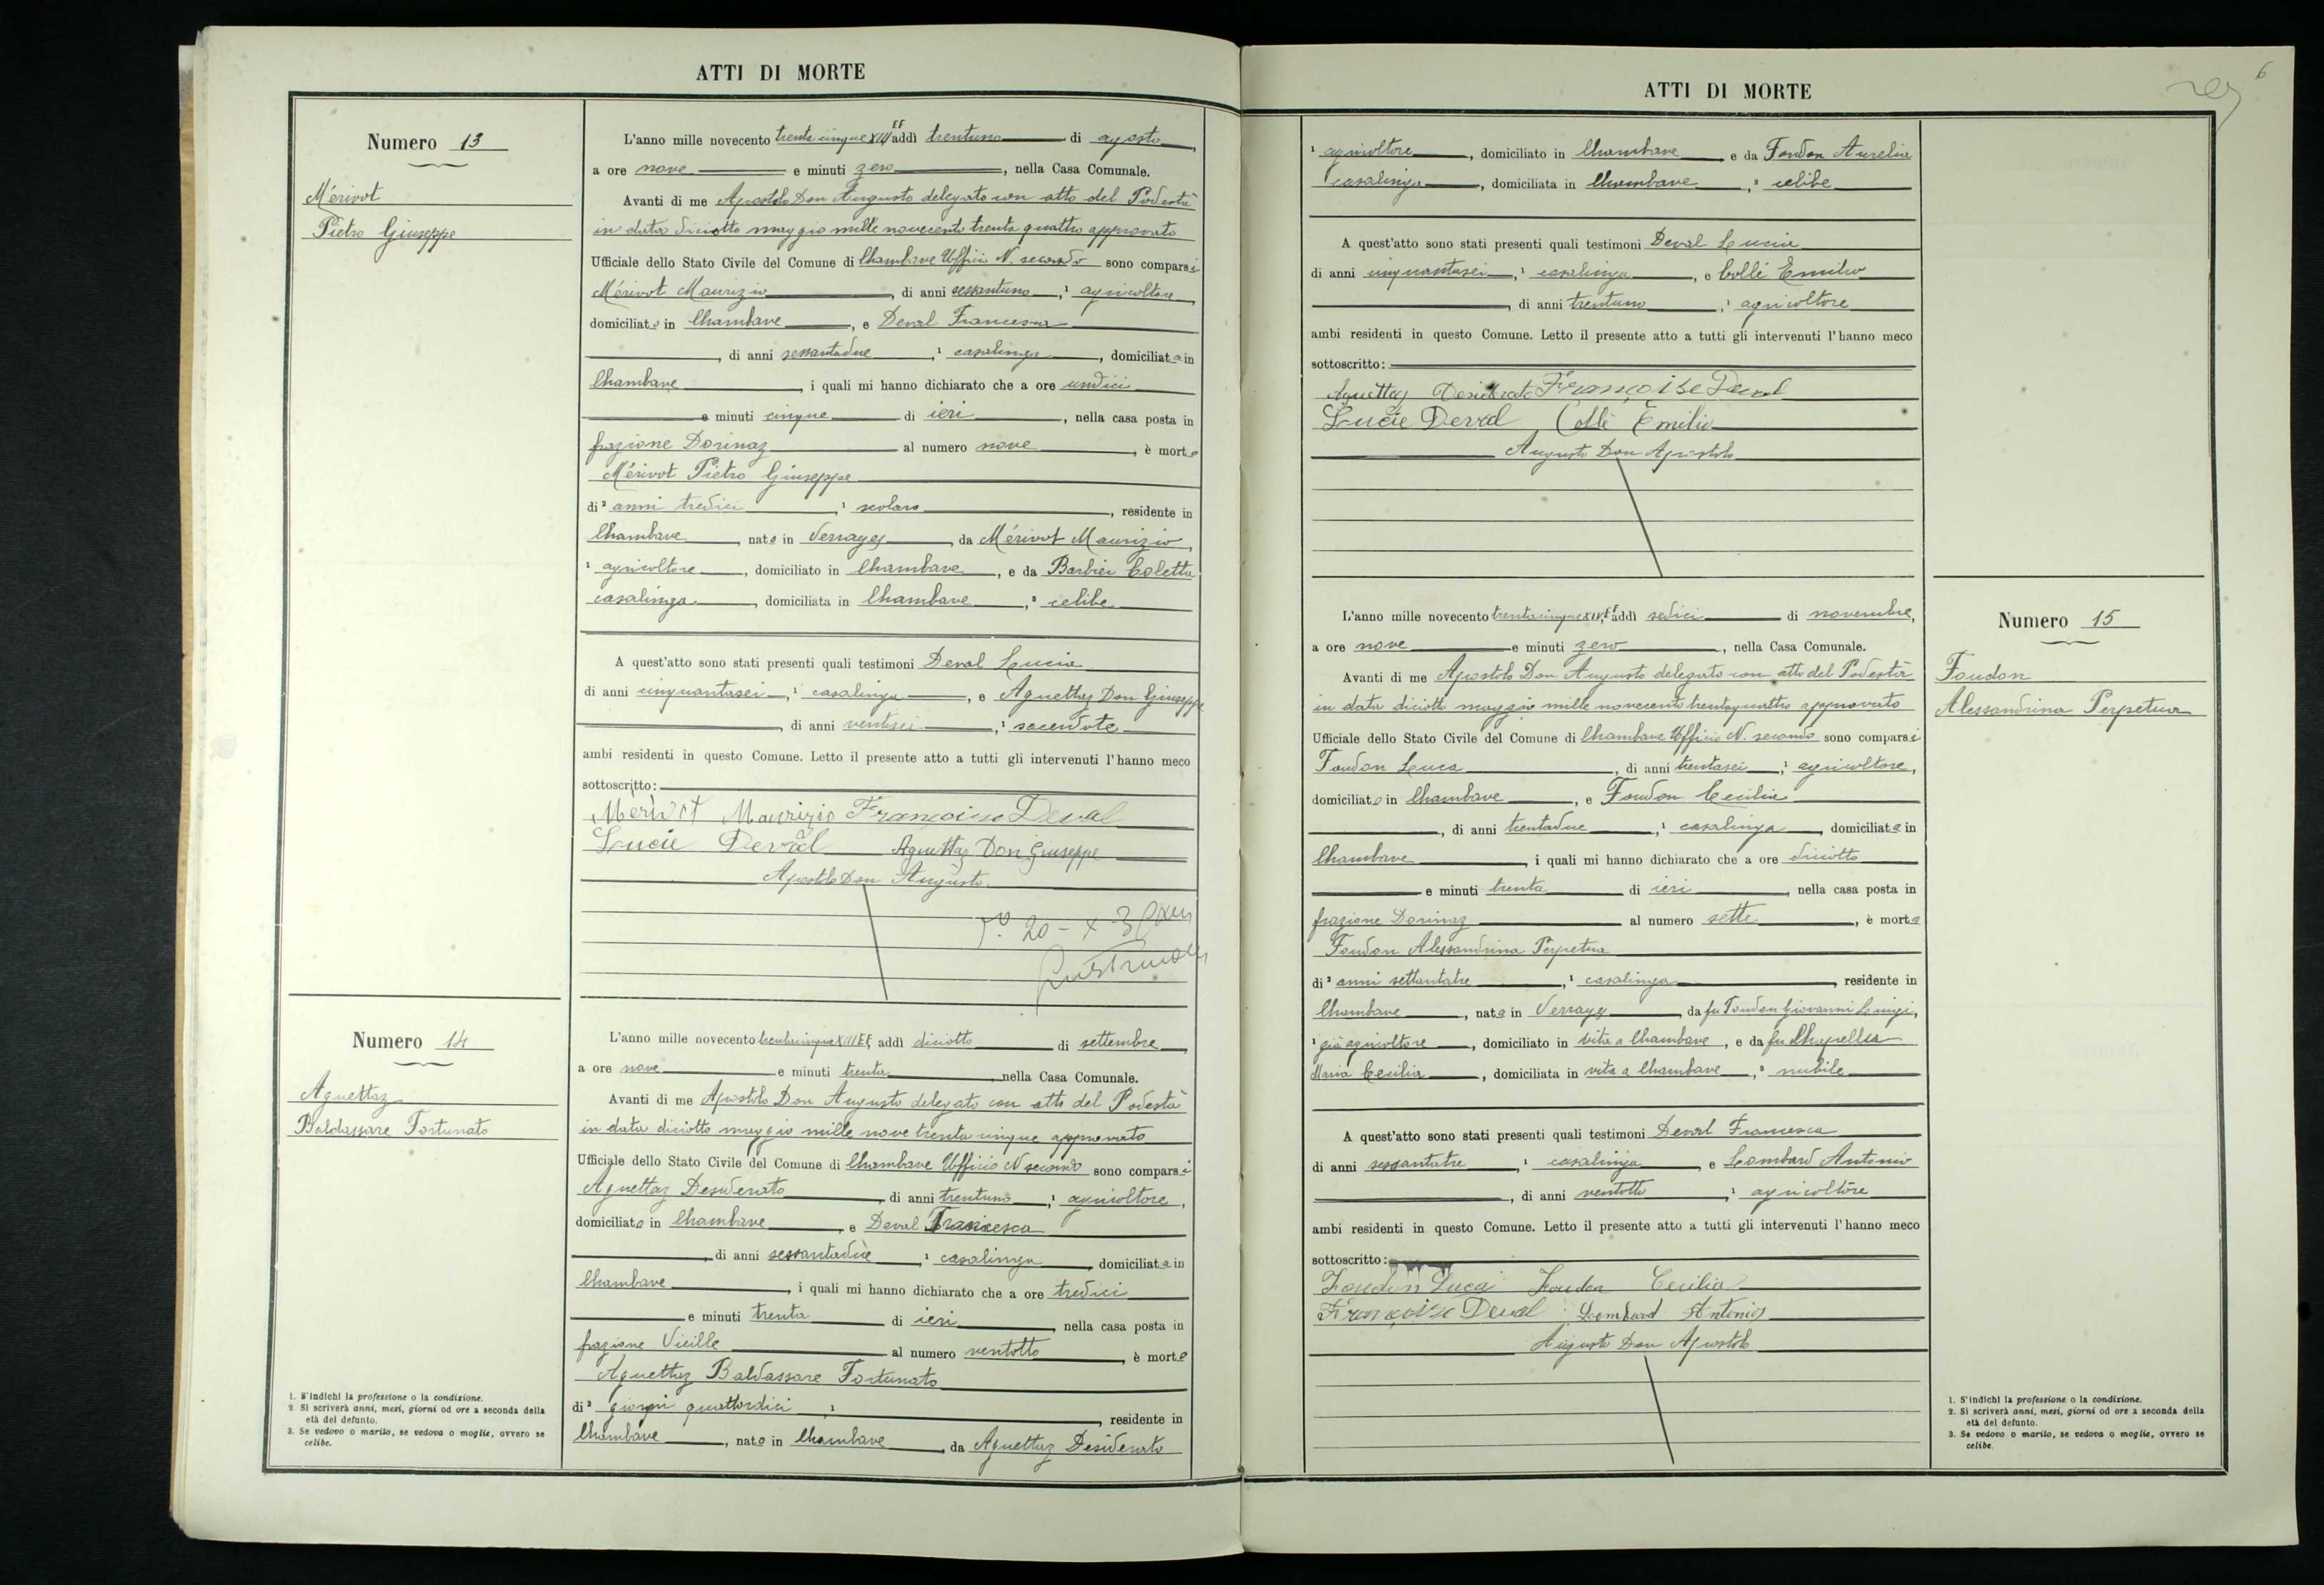 ATTI DI MORTE
Numero 13
Mérivot
Pietro Giuseppe
L'anno mille novecento trenta cinque XIII EF addì trentuno di agosto,
a ore nove e minuti zero, nella Casa Comunale.
Avanti di me Apostolo Don Augusto delegato con atto del Podestà
in data diciotto maggio mille novecento trenta quattro approvato
Ufficiale dello Stato Civile del Comune di Chambave Ufficio N. secondo sono comparsi
Mérivot Maurizio, di anni sessantuno,¹ agricoltore
domiciliato in Chambave, e Deval Francesca
, di anni sessantadue,¹ casalinga, domiciliata in
Chambave, i quali mi hanno dichiarato che a ore undici
e minuti cinque di ieri, nella casa posta in
frazione Dorinaz al numero nove, è morto
Mérivot Pietro Giuseppe
di² anni tredici,¹ scolaro, residente in
Chambave, nato in Verrayes, da Mérivot Maurizio,
¹ agricoltore, domiciliato in Chambave, e da Barbier Coletta
casalinga, domiciliata in Chambave,³ celibe
A quest'atto sono stati presenti quali testimoni Deval Lucia
di anni cinquantasei,¹ casalinga, e Aguettaz Don Giuseppe
, di anni ventisei,¹ sacerdote
ambi residenti in questo Comune. Letto il presente atto a tutti gli intervenuti l'hanno meco
sottoscritto:
Mèrivot Maurizio Françoise Deval
Lucie Deval Aguettaz Don Giuseppe
Apostolo Don Augusto.
20 - X - 3
Numero 14
Aguettaz
Baldassare Fortunato
L'anno mille novecento trentacinque XIII EF, addì diciotto di settembre
a ore nove e minuti trenta, nella Casa Comunale.
Avanti di me Apostolo Don Augusto delegato con atto del Podestà
in data diciotto maggio mille nove trenta cinque approvato
Ufficiale dello Stato Civile del Comune di Chambave Ufficio N secondo sono comparsi
Aguettaz Desiderato, di anni trentuno,¹ agricoltore,
domiciliato in Chambave, e Deval Francesca
di anni sessantadue,¹ casalinga, domiciliata in
Chambave, i quali mi hanno dichiarato che a ore tredici
e minuti trenta di ieri, nella casa posta in
frazione Vieille al numero ventotto, è morto
Aguettaz Baldassare Fortunato
di² giorni quattordici,¹, residente in
Chambave, nato in Chambave, da Aguettaz Desiderato
1. S'indichi la professione o la condizione.
2. Si scriverà anni, mesi, giorni od ore a seconda della
età del defunto.
3. Se vedovo o marito, se vedova o moglie, ovvero se
celibe.
ATTI DI MORTE
6
¹ agricoltore, domiciliato in Chambave e da Foudon Aurelia
casalinga, domiciliata in Chambave,³ celibe
A quest'atto sono stati presenti quali testimoni Deval Lucia
di anni cinquantasei,¹ casalinga, e Collé Emilio
, di anni trentuno,¹ agricoltore
ambi residenti in questo Comune. Letto il presente atto a tutti gli intervenuti l'hanno meco
sottoscritto:
Aguettaz Desiderato Françoise Deval
Lucie Deval Collé Emilio
Augusto Don Apostolo
Numero 15
Foudon
Alessandrina Perpetua
L'anno mille novecento trentacinque XIV EF addì sedici di novembre,
a ore nove e minuti zero, nella Casa Comunale.
Avanti di me Apostolo Don Augusto delegato con atto del Podestà
in data diciotto maggio mille novecento trentaquattro approvato
Ufficiale dello Stato Civile del Comune di Chambave Ufficio N. secondo sono comparsi
Foudon Luca, di anni trentasei,¹ agricoltore,
domiciliato in Chambave, e Foudon Cecilia
, di anni trentadue,¹ casalinga, domiciliata in
Chambave, i quali mi hanno dichiarato che a ore diciotto
e minuti trenta di ieri, nella casa posta in
frazione Dorinaz al numero sette, è morta
Foudon Alessandrina Perpetua
di² anni settantatre,¹ casalinga, residente in
Chambave, nata in Verrayes, da fu Foudon Giovanni Luigi,
¹ già agricoltore, domiciliato in vita a Chambave, e da fu Chapellea
Maria Cecilia, domiciliata in vita a Chambave,³ nubile
A quest'atto sono stati presenti quali testimoni Deval Francesca
di anni sessantatre,¹ casalinga e Lombard Antonio
, di anni ventotto,¹ agricoltore
ambi residenti in questo Comune. Letto il presente atto a tutti gli intervenuti l'hanno meco
sottoscritto:
Foudon Luca Foudon Cecilia
Françoise Deval Lombard Antonio
Augusto Don Apostolo
1. S'indichi la professione o la condizione.
2. Si scriverà anni, mesi, giorni od ore a seconda della
età del defunto.
3. Se vedovo o marito, se vedova o moglie, ovvero se
celibe.